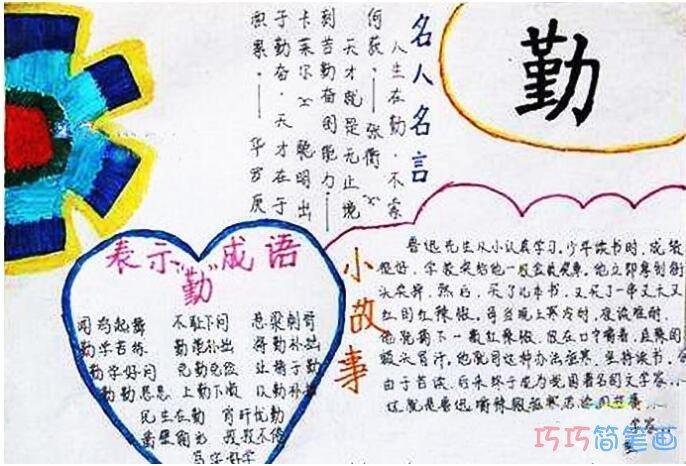 勤
名人名言
人生在勤·不索
何获·——张衡
天才就是无止境
刻苦勤奋的能力——
卡莱尔 聪明出
于勤奋·天才在于
积累·——华罗庚
表示"勤"成语
闻鸡起舞 不耻下问 悬梁刺骨
勤学苦练 勤能补拙 将勤补拙
勤学好问 克勤克俭
勤勤恳恳 上勤下顺 以勤补拙
民生在勤 宵旰忧勤
凿壁偷光 孜孜不倦
小故事
鲁迅先生从小认真学习。少年读书时,成绩
很好,学校奖给他一枚金质奖章。他立即拿到街
头卖掉,然后,买了几本书,又买了一串又大又
红的红辣椒。每当晚上寒冷时,夜读难耐,
他就摘下一颗红辣椒,放在口中嚼着,直辣的
额头冒汗,他就用这种办法驱寒,坚持读书。
由于苦读,后来终于成为我国著名的文学家。
这就是鲁迅嚼辣椒驱寒的故事
巧巧简笔画